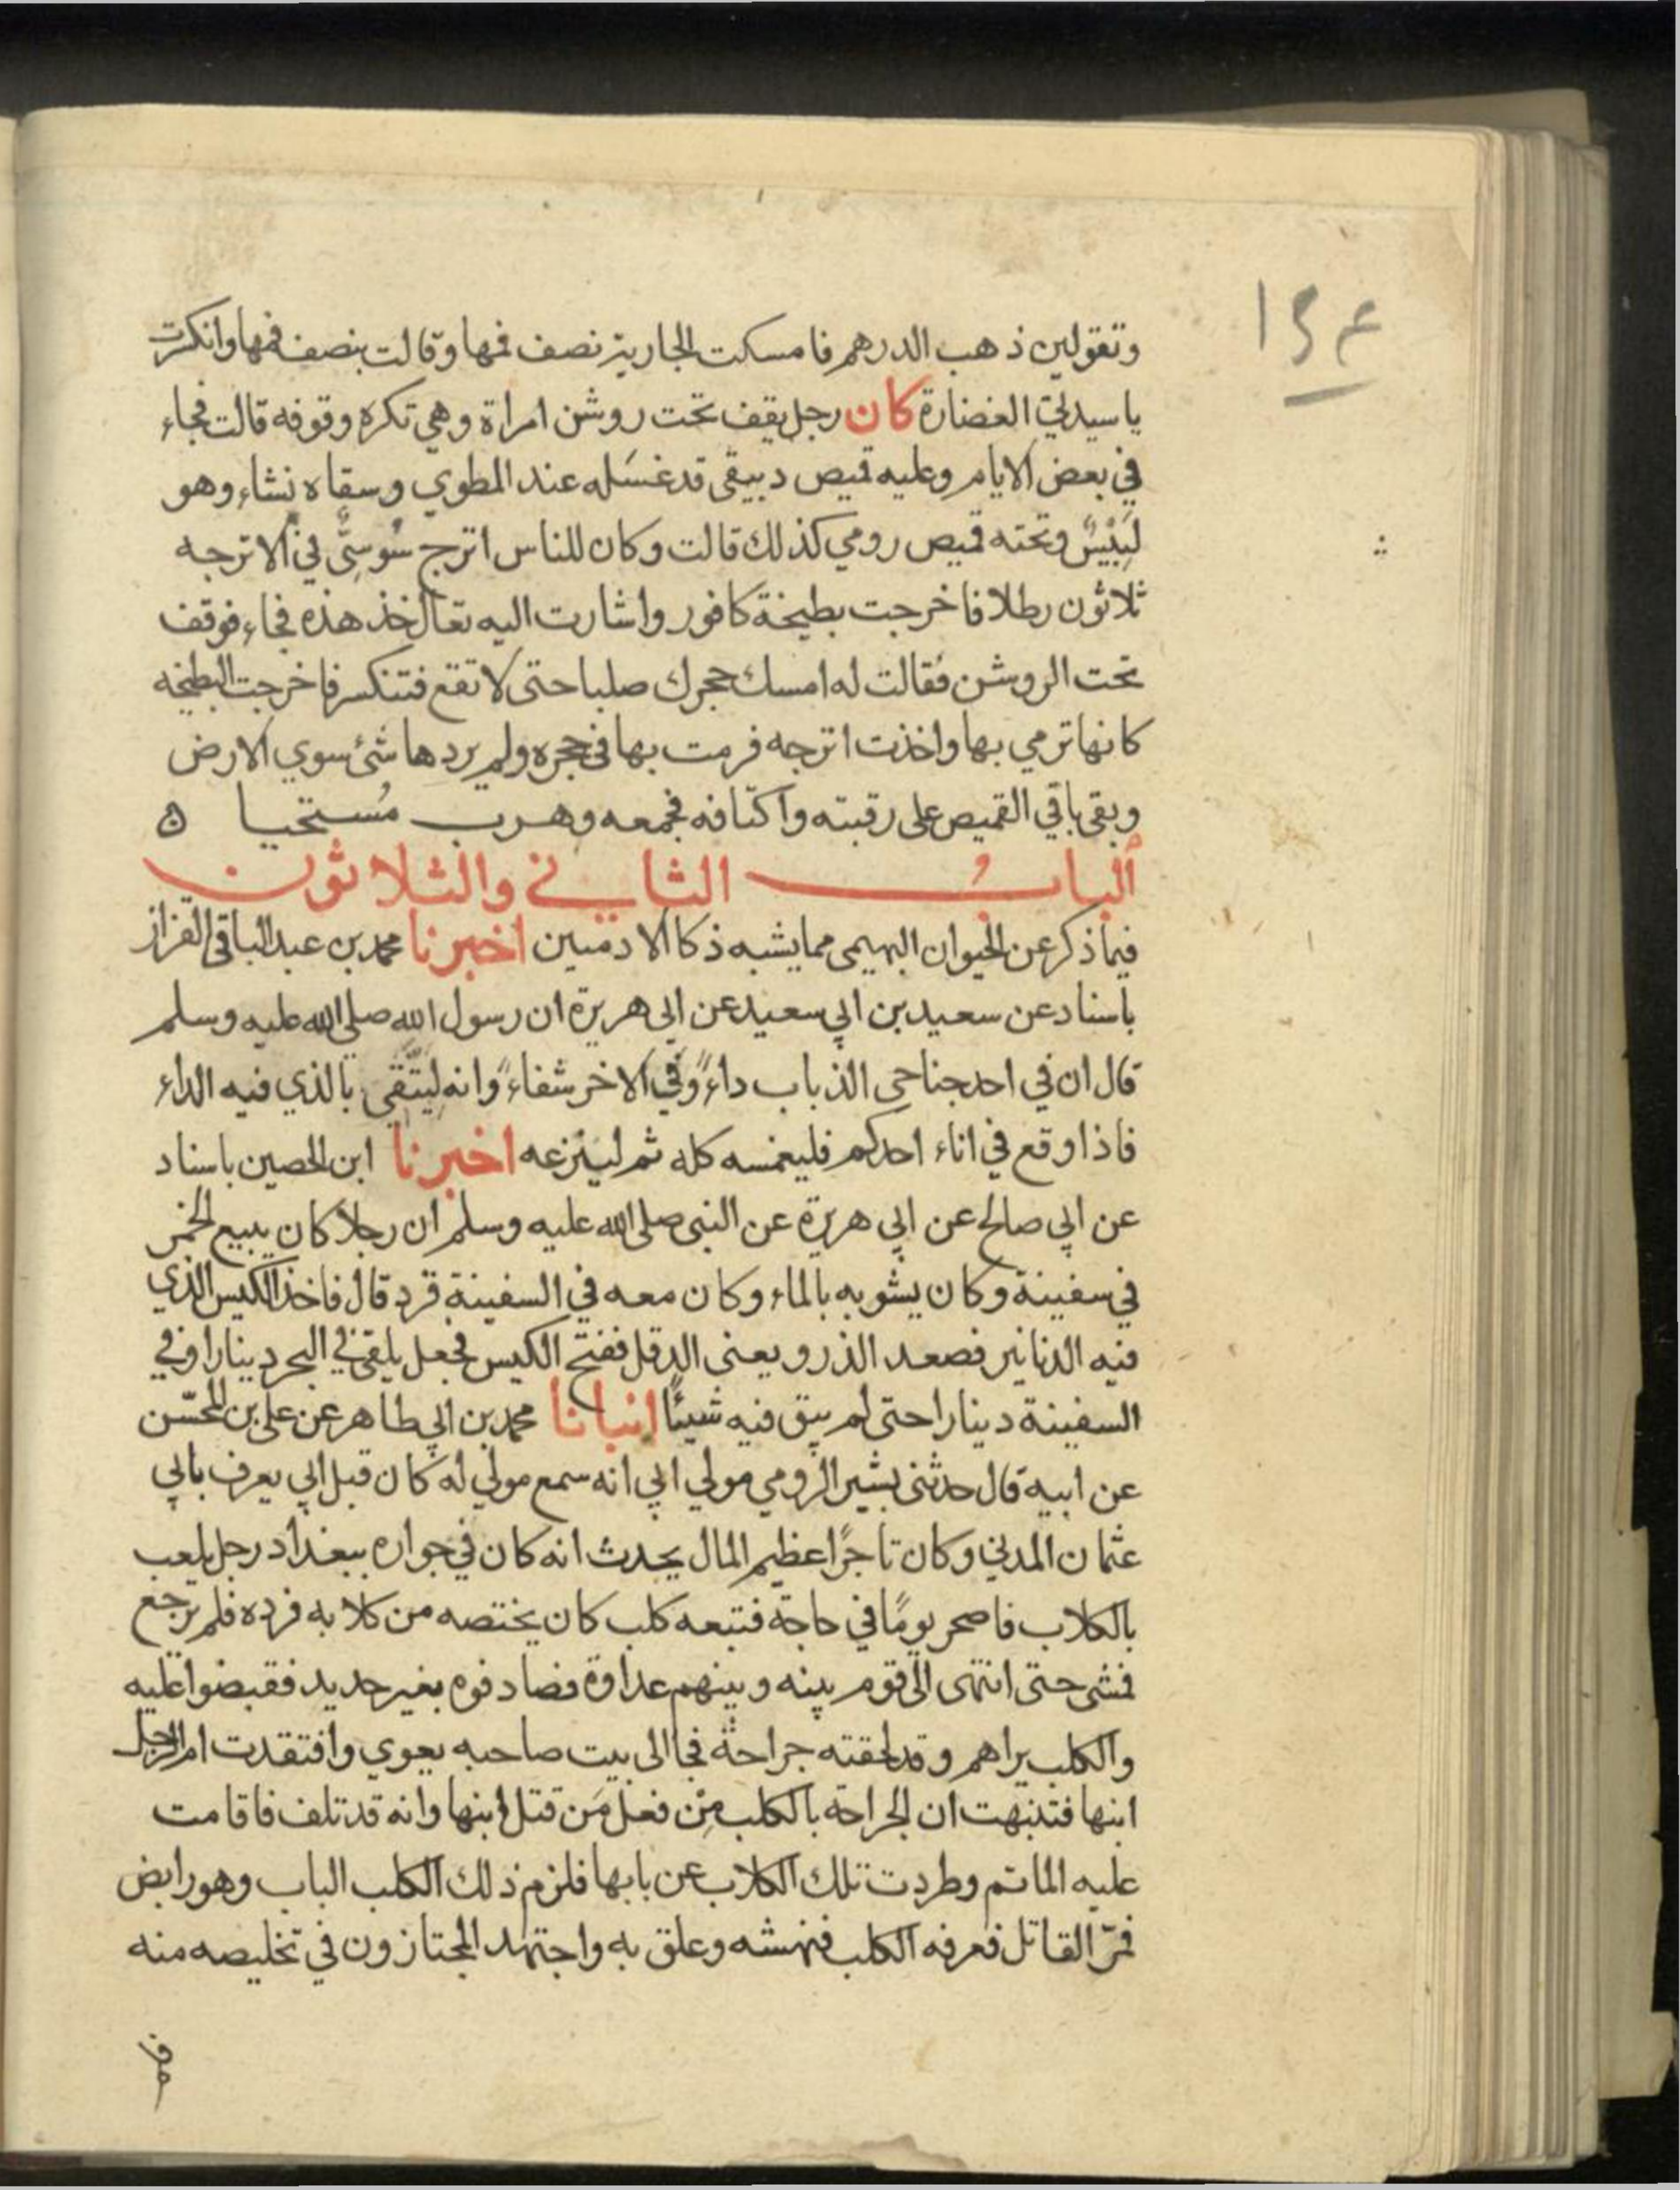 ١٥٤
وتقولين ذهب الدرهم فامسكت الجارية نصف فمها وقالت بنصف فمها وانكرت
ياسيدتي الغضارة كان رجل يقف تحت روشن امراة وهي تكره وقوفه قالت فجاء
في بعض الايام وعليه قميص دبيقي قد غسله عند المطوي وسقاه نشاء وهو
لبيس وتحته قميص رومي كذلك قالت وكان للناس اترج سوسي في الاترجه
ثلاثون رطلا فاخرجت بطيخة كافور واشارت اليه تعال خذ هذه فجاء فوقف
تحت الروشن فقالت له امسك حجرك صلبا حتى لا تقع فتنكسر فاخرجت البطيخه
كانها ترمي بها واخذت اترجه فرمت بها في حجره ولم يردها شئ سوي الارض
وبقي باقي القميص على رقبته واكتافه فجمعه وهرب مستحيا ه
الباب الثاني والثلاثون
فيما ذكر عن الحيوان البهيمي مما يشبه ذكا الادميين اخبرنا محمد بن عبد الباقي القزاز
باسناد عن سعيد بن ابي سعيد عن ابي هريرة ان رسول الله صلى الله عليه وسلم
قال ان في احد جناحي الذباب داء وفي الاخر شفاء وانه ليتقي بالذي فيه الداء
فاذا وقع في اناء احدكم فليغمسه كله ثم لينزعه اخبرنا ابن الحصين باسناد
عن ابي صالح عن ابي هريرة عن النبي صلى الله عليه وسلم ان رجلا كان يبيع الخمر
في سفينة وكان يشوبه بالماء وكان معه في السفينة قرد قال فاخذ الكيس الذي
فيه الدنانير فصعد الذرو يعنى الدقل ففتح الكيس فجعل يلقي في البحر دينارا وفي
السفينة دينارا حتى لم يبق فيه شيئا انبانا محمد بن ابي طاهر عن علي بن المحسن
عن ابيه قال حدثني بشير الرومي مولي ابي انه سمع مولي له كان قبل ابي يعرف بابي
عثمان المدني وكان تاجرا عظيم المال يحدث انه كان في جواره ببغداد رجل يلعب
بالكلاب فاصحر يوما في حاجة فتبعه كلب كان يختصه من كلابه فرده فلم يرجع
فمشى حتى انتهى الى قوم بينه وبينهم عداوة فصادفوه بغير حديد فقبضوا عليه
والكلب يراهم وقد لحقته جراحة فجا الى بيت صاحبه يعوي وافتقدت ام الرجل
ابنها فتنبهت ان الجراحة بالكلب من فعل من قتل ابنها وانه قد تلف فاقامت
عليه الماتم وطردت تلك الكلاب عن بابها فلزم ذلك الكلب الباب وهو رابض
فمر القاتل فعرفه الكلب فنهشه وعلق به واجتهد المجتازون في تخليصه منه